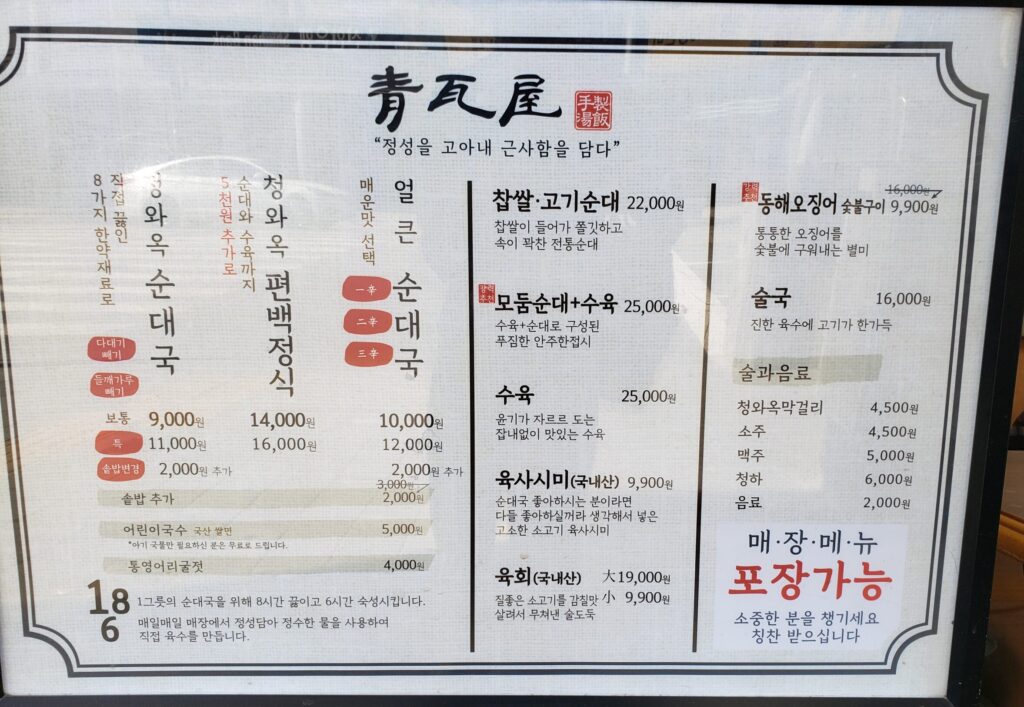 青瓦屋
手製
湯飯
“정성을 고아내 근사함을 담다”
8가지 한약재료로
직접 끓인
청와옥 순대국
다대기
빼기
들깨가루
빼기
5천원 추가로
순대와 수육까지
청와옥 편백정식
매운맛 선택
얼큰 순대국
一辛
二辛
三辛
보통 9,000원 14,000원 10,000원
특 11,000원 16,000원 12,000원
솥밥변경 2,000원 추가 2,000원 추가
3,000원
솥밥 추가 2,000원
어린이국수 국산 쌀면 5,000원
*아기 국물만 필요하신 분은 무료로 드립니다.
통영어리굴젓 4,000원
1 8 1그릇의 순대국을 위해 8시간 끓이고 6시간 숙성시킵니다.
6 매일매일 매장에서 정성담아 정수한 물을 사용하여
직접 육수를 만듭니다.
찹쌀·고기순대 22,000원
찹쌀이 들어가 쫄깃하고
속이 꽉찬 전통순대
강력
추천
모둠순대+수육 25,000원
수육+순대로 구성된
푸짐한 안주한접시
수육 25,000원
윤기가 자르르 도는
잡내없이 맛있는 수육
육사시미(국내산) 9,900원
순대국 좋아하시는 분이라면
다들 좋아하실꺼라 생각해서 넣은
고소한 소고기 육사시미
육회(국내산) 大 19,000원
질좋은 소고기를 감칠맛 小 9,900원
살려서 무쳐낸 술도둑
강력
추천
16,000원
동해오징어 숯불구이 9,900원
통통한 오징어를
숯불에 구워내는 별미
술국 16,000원
진한 육수에 고기가 한가득
술과음료
청와옥막걸리 4,500원
소주 4,500원
맥주 5,000원
청하 6,000원
음료 2,000원
매·장·메·뉴
포장가능
소중한 분을 챙기세요
칭찬 받으십니다